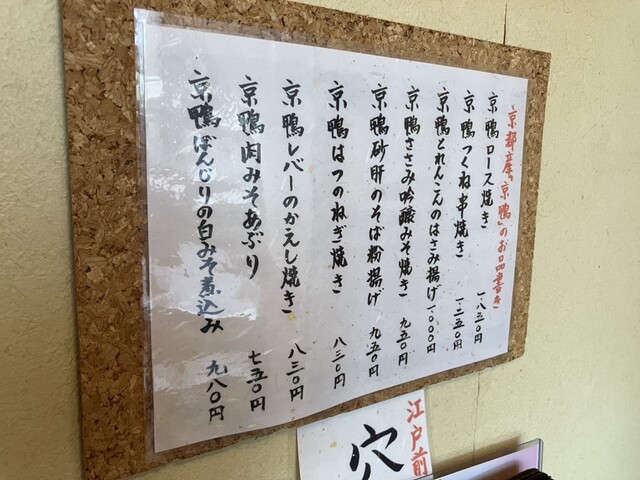 京都産「京鴨」のお品書き
京鴨ロース焼き 一.八三〇円
京鴨つくね串焼き 一.二五〇円
京鴨とれんこんのはさみ揚げ 一.〇〇〇円
京鴨ささみ吟醸みそ焼き 九五〇円
京鴨砂肝のそば粉揚げ 九五〇円
京鴨はつのねぎ焼き 八三〇円
京鴨レバーのかえし焼き 八三〇円
京鴨肉みそあぶり 七五〇円
京鴨ぼんじりの白みそ煮込み 九八〇円
江戸前
穴